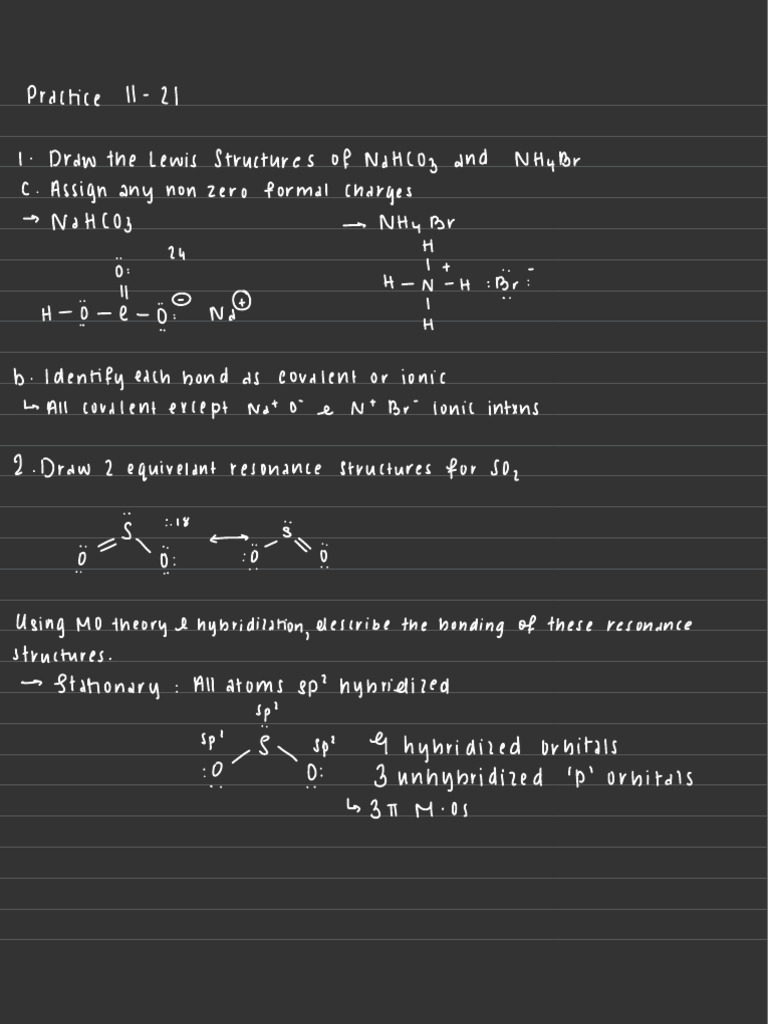 Practice 11-21
1. Draw the Lewis Structures of NaHCO3 and NH4Br
C. Assign any non zero formal charges
→ NaHCO3 → NH4 Br
24
O
H - O - C - O - Na +
H
H - N + - H Br -
H
b. Identify each bond as covalent or ionic
↳ All covalent except Na+ O- & N+ Br- ionic intxns
2. Draw 2 equivelant resonance structures for SO2
S :.18 ↔ S
O O: :O O
Using MO theory & hybridization, describe the bonding of these resonance
structures.
→ Stationary : All atoms sp2 hybridized
sp2
sp2 S sp2 9 hybridized orbitals
:O O: 3 unhybridized 'p' orbitals
↳ 3 π M.Os